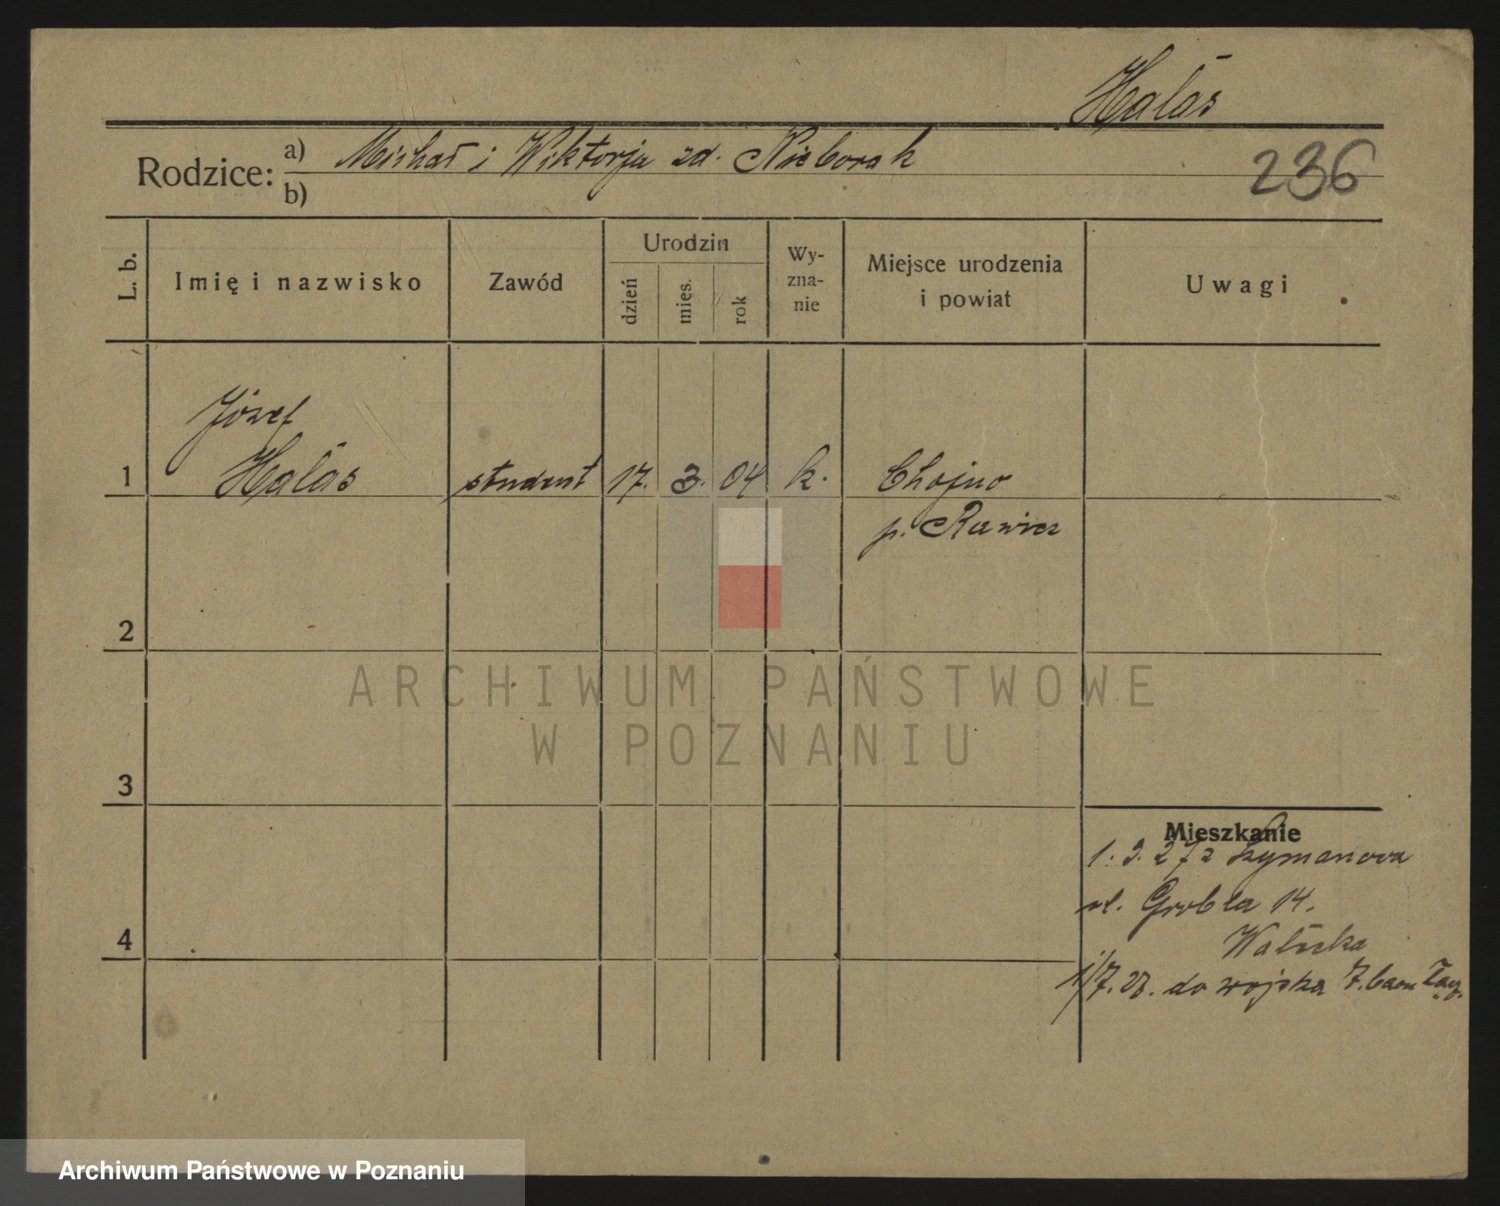 Halas
Rodzice: a) Michał i Wiktorja zd. Nieborak
b)
236
L. b.
Imię i nazwisko
Zawód
Urodzin
dzień
mies.
rok
Wy-
zna-
nie
Miejsce urodzenia
i powiat
Uwagi
Józef
1 Halas student 17. 3. 04 k. Chojno
p. Rawicz
2
3
4
Mieszkanie
1. 3. 27 z Szymanowa
ul. Grobla 14.
Wałecka
1/7. 28. do wojska 7. baon
ARCHIWUM PAŃSTWOWE
W POZNANIU
Archiwum Państwowe w Poznaniu